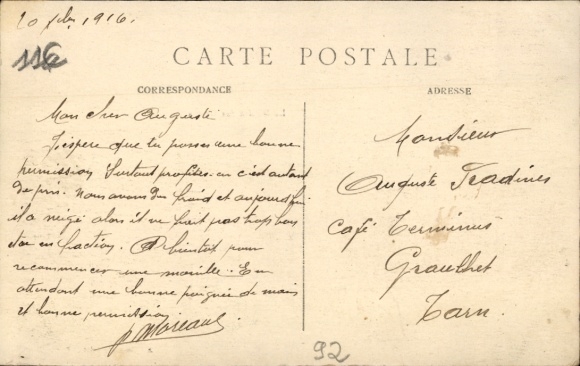 20 Xbre 1916.
116
CARTE POSTALE
CORRESPONDANCE
Mon cher Auguste
J'espere que tu passes une bonne
permission Surtout profites-en c'est autant
de pris. Nous avons du froid et aujourd'hui
il a neigé alors il ne fait pas trop bon
en faction. A bientôt pour
recommencer une manille. En
attendant une bonne poignée de main
et bonne permission
Moreau
ADRESSE
Monsieur
Auguste Tradines
Café Terminus
Graulhet
Tarn.
92